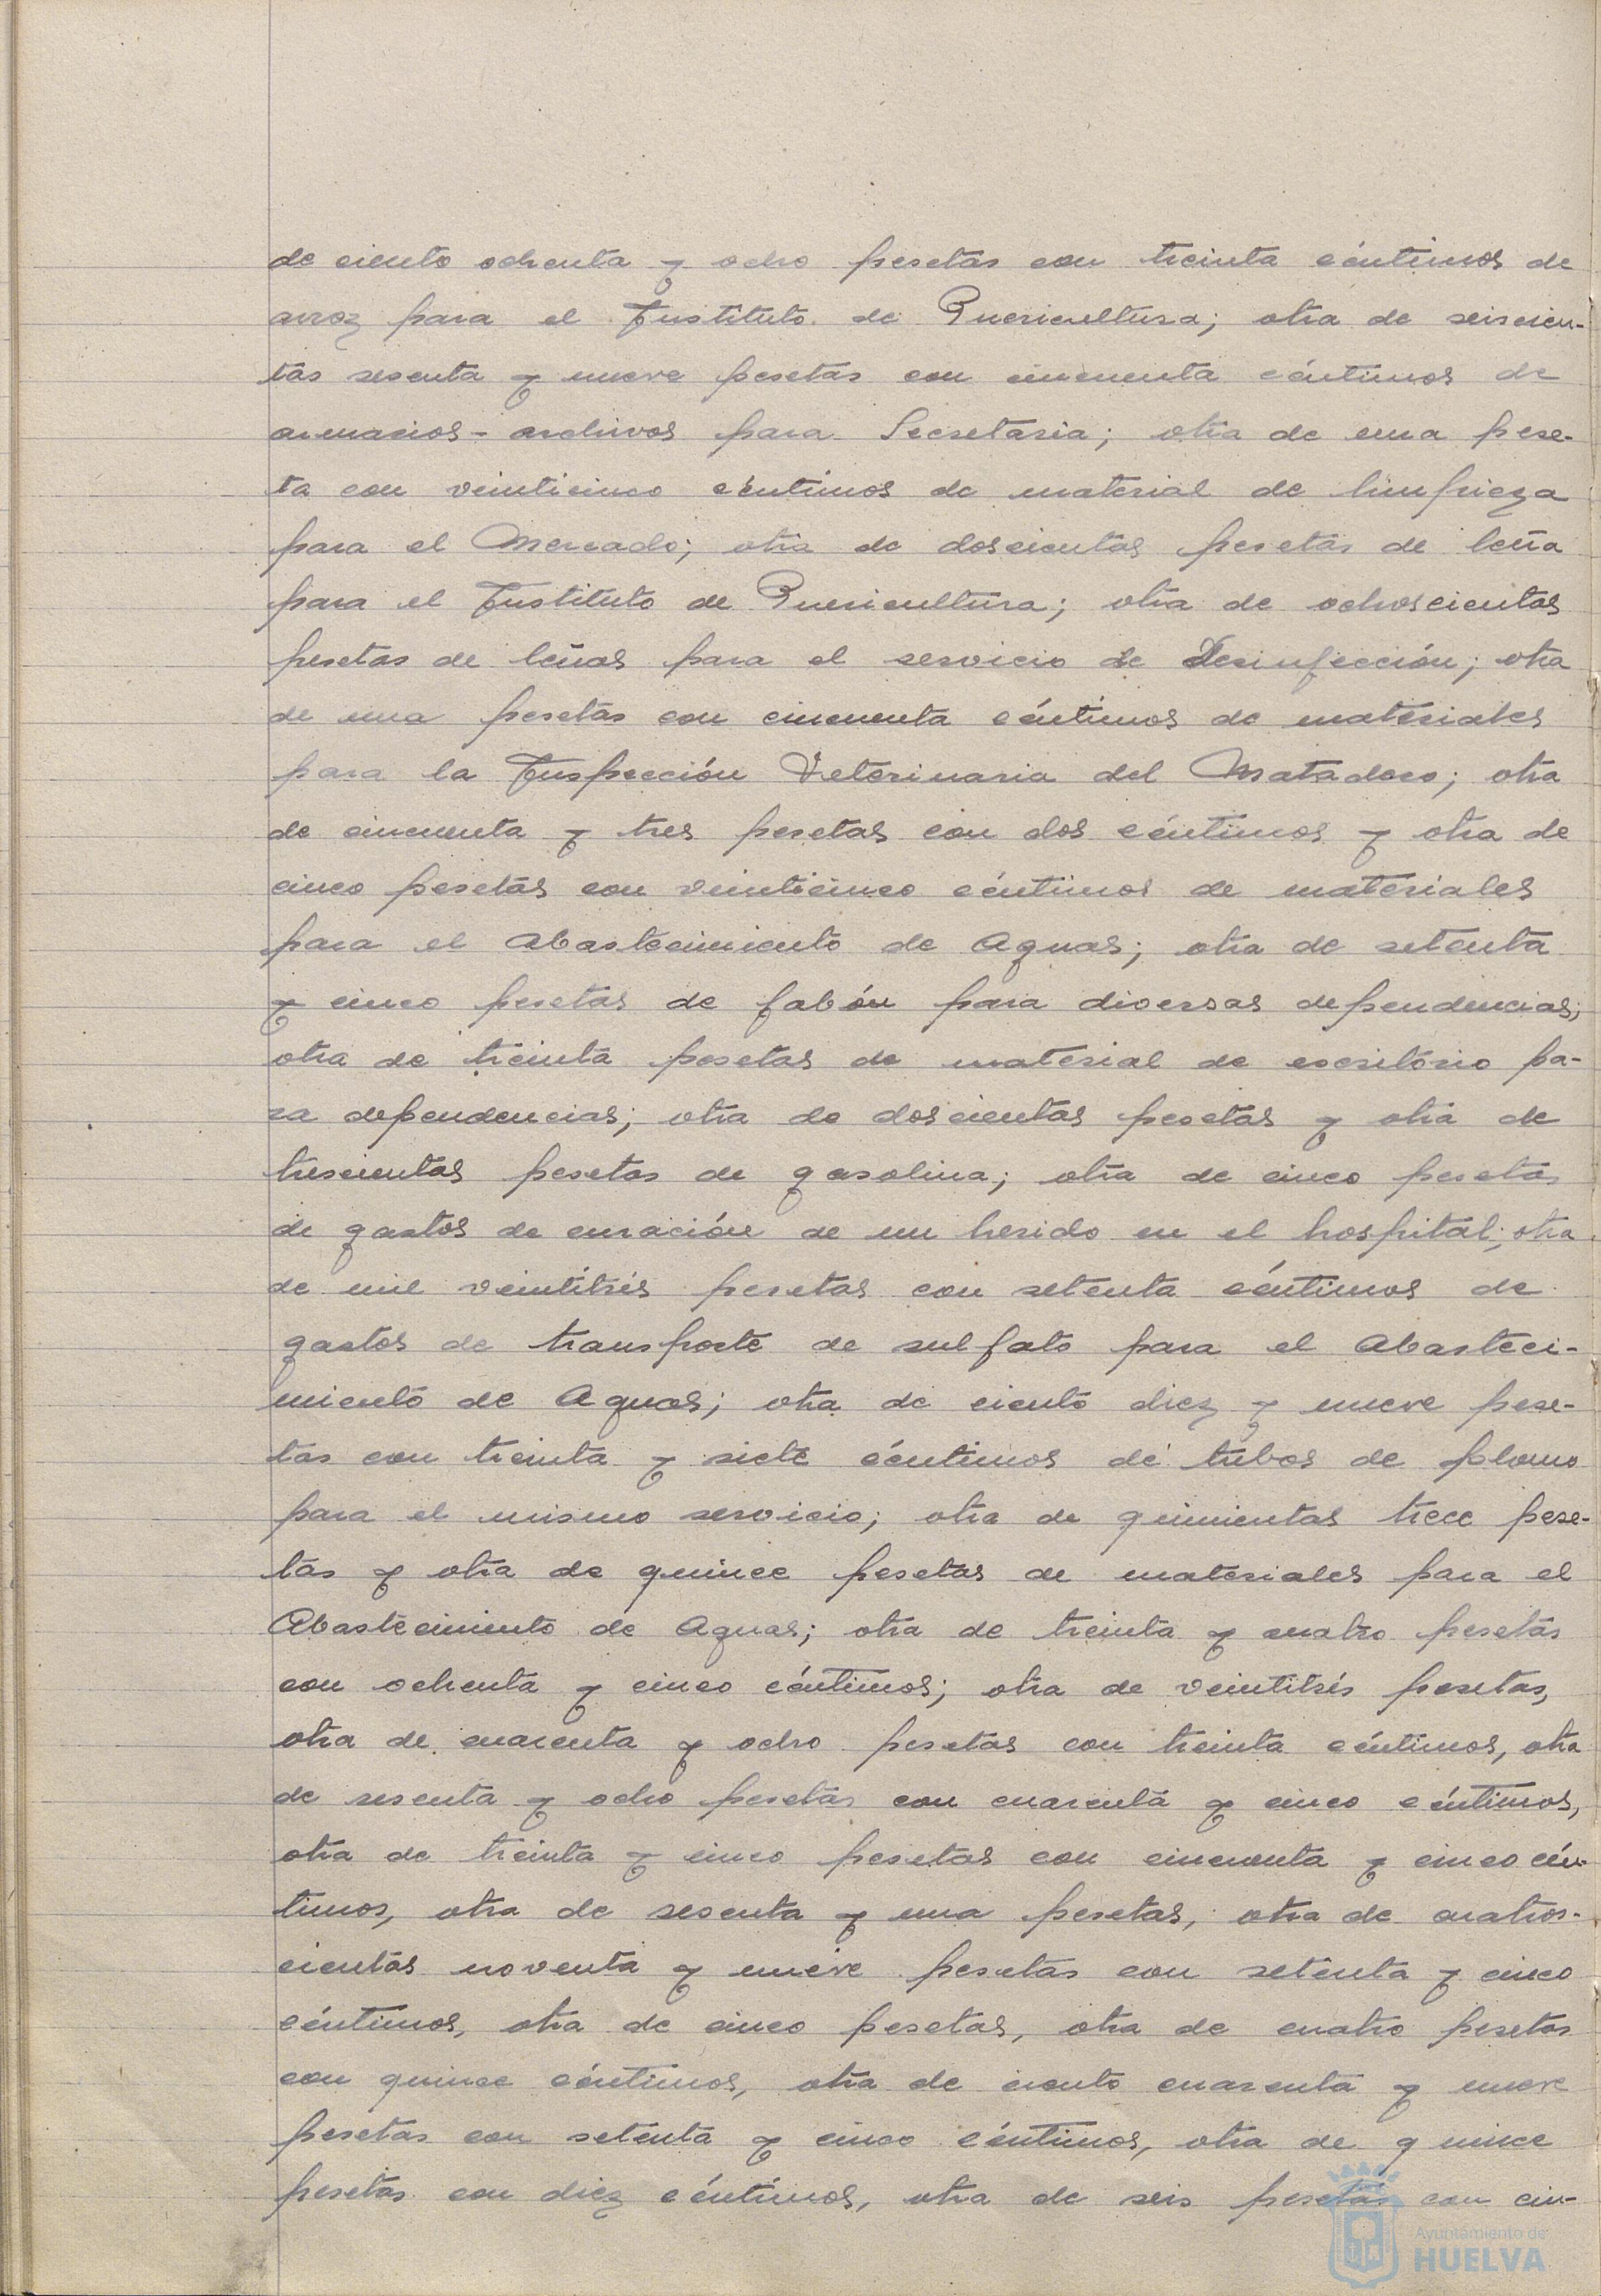 de ciento ochenta y ocho pesetas con treinta céntimos de
arroz para el Instituto de Puericultura; otra de seiscien-
tas sesenta y nueve pesetas con cincuenta céntimos de
armarios-archivos para Secretaria; otra de una pese-
ta con veinticinco céntimos de material de limpieza
para el Mercado; otra de doscientas pesetas de leña
para el Instituto de Puericultura; otra de ochoscientas
pesetas de leñas para el servicio de Desinfección; otra
de una pesetas con cincuenta céntimos de materiales
para la Inspección Veterinaria del Matadero; otra
de cincuenta y tres pesetas con dos céntimos y otra de
cinco pesetas con veinticinco céntimos de materiales
para el Abastecimiento de Aguas; otra de setenta
y cinco pesetas de jabón para diversas dependencias;
otra de treinta pesetas de material de escritório pa-
ra dependencias; otra de doscientas pesetas y otra de
trescientas pesetas de gasolina; otra de cinco pesetas
de gastos de curación de un herido en el hospital; otra
de mil veintitrés pesetas con setenta céntimos de
gastos de transporte de sulfato para el Abasteci-
miento de Aguas; otra de ciento diez y nueve pese-
tas con treinta y siete céntimos de tubos de plomo
para el mismo servicio; otra de quinientas trece pese-
tas y otra de quince pesetas de materiales para el
Abastecimiento de Aguas; otra de treinta y cuatro pesetas
con ochenta y cinco céntimos; otra de veintitrés pesetas,
otra de cuarenta y ocho pesetas con treinta céntimos, otra
de sesenta y ocho pesetas con cuarenta y cinco céntimos,
otra de treinta y cinco pesetas con cincuenta y cinco cén-
timos, otra de sesenta y una pesetas, otra de cuatros-
cientas noventa y nueve pesetas con setenta y cinco
céntimos, otra de cinco pesetas, otra de cuatro pesetas
con quince céntimos, otra de ciento cuarenta y nueve
pesetas con setenta y cinco céntimos, otra de quince
pesetas con diez céntimos, otra de seis pesetas con cin-
Ayuntamiento de
HUELVA